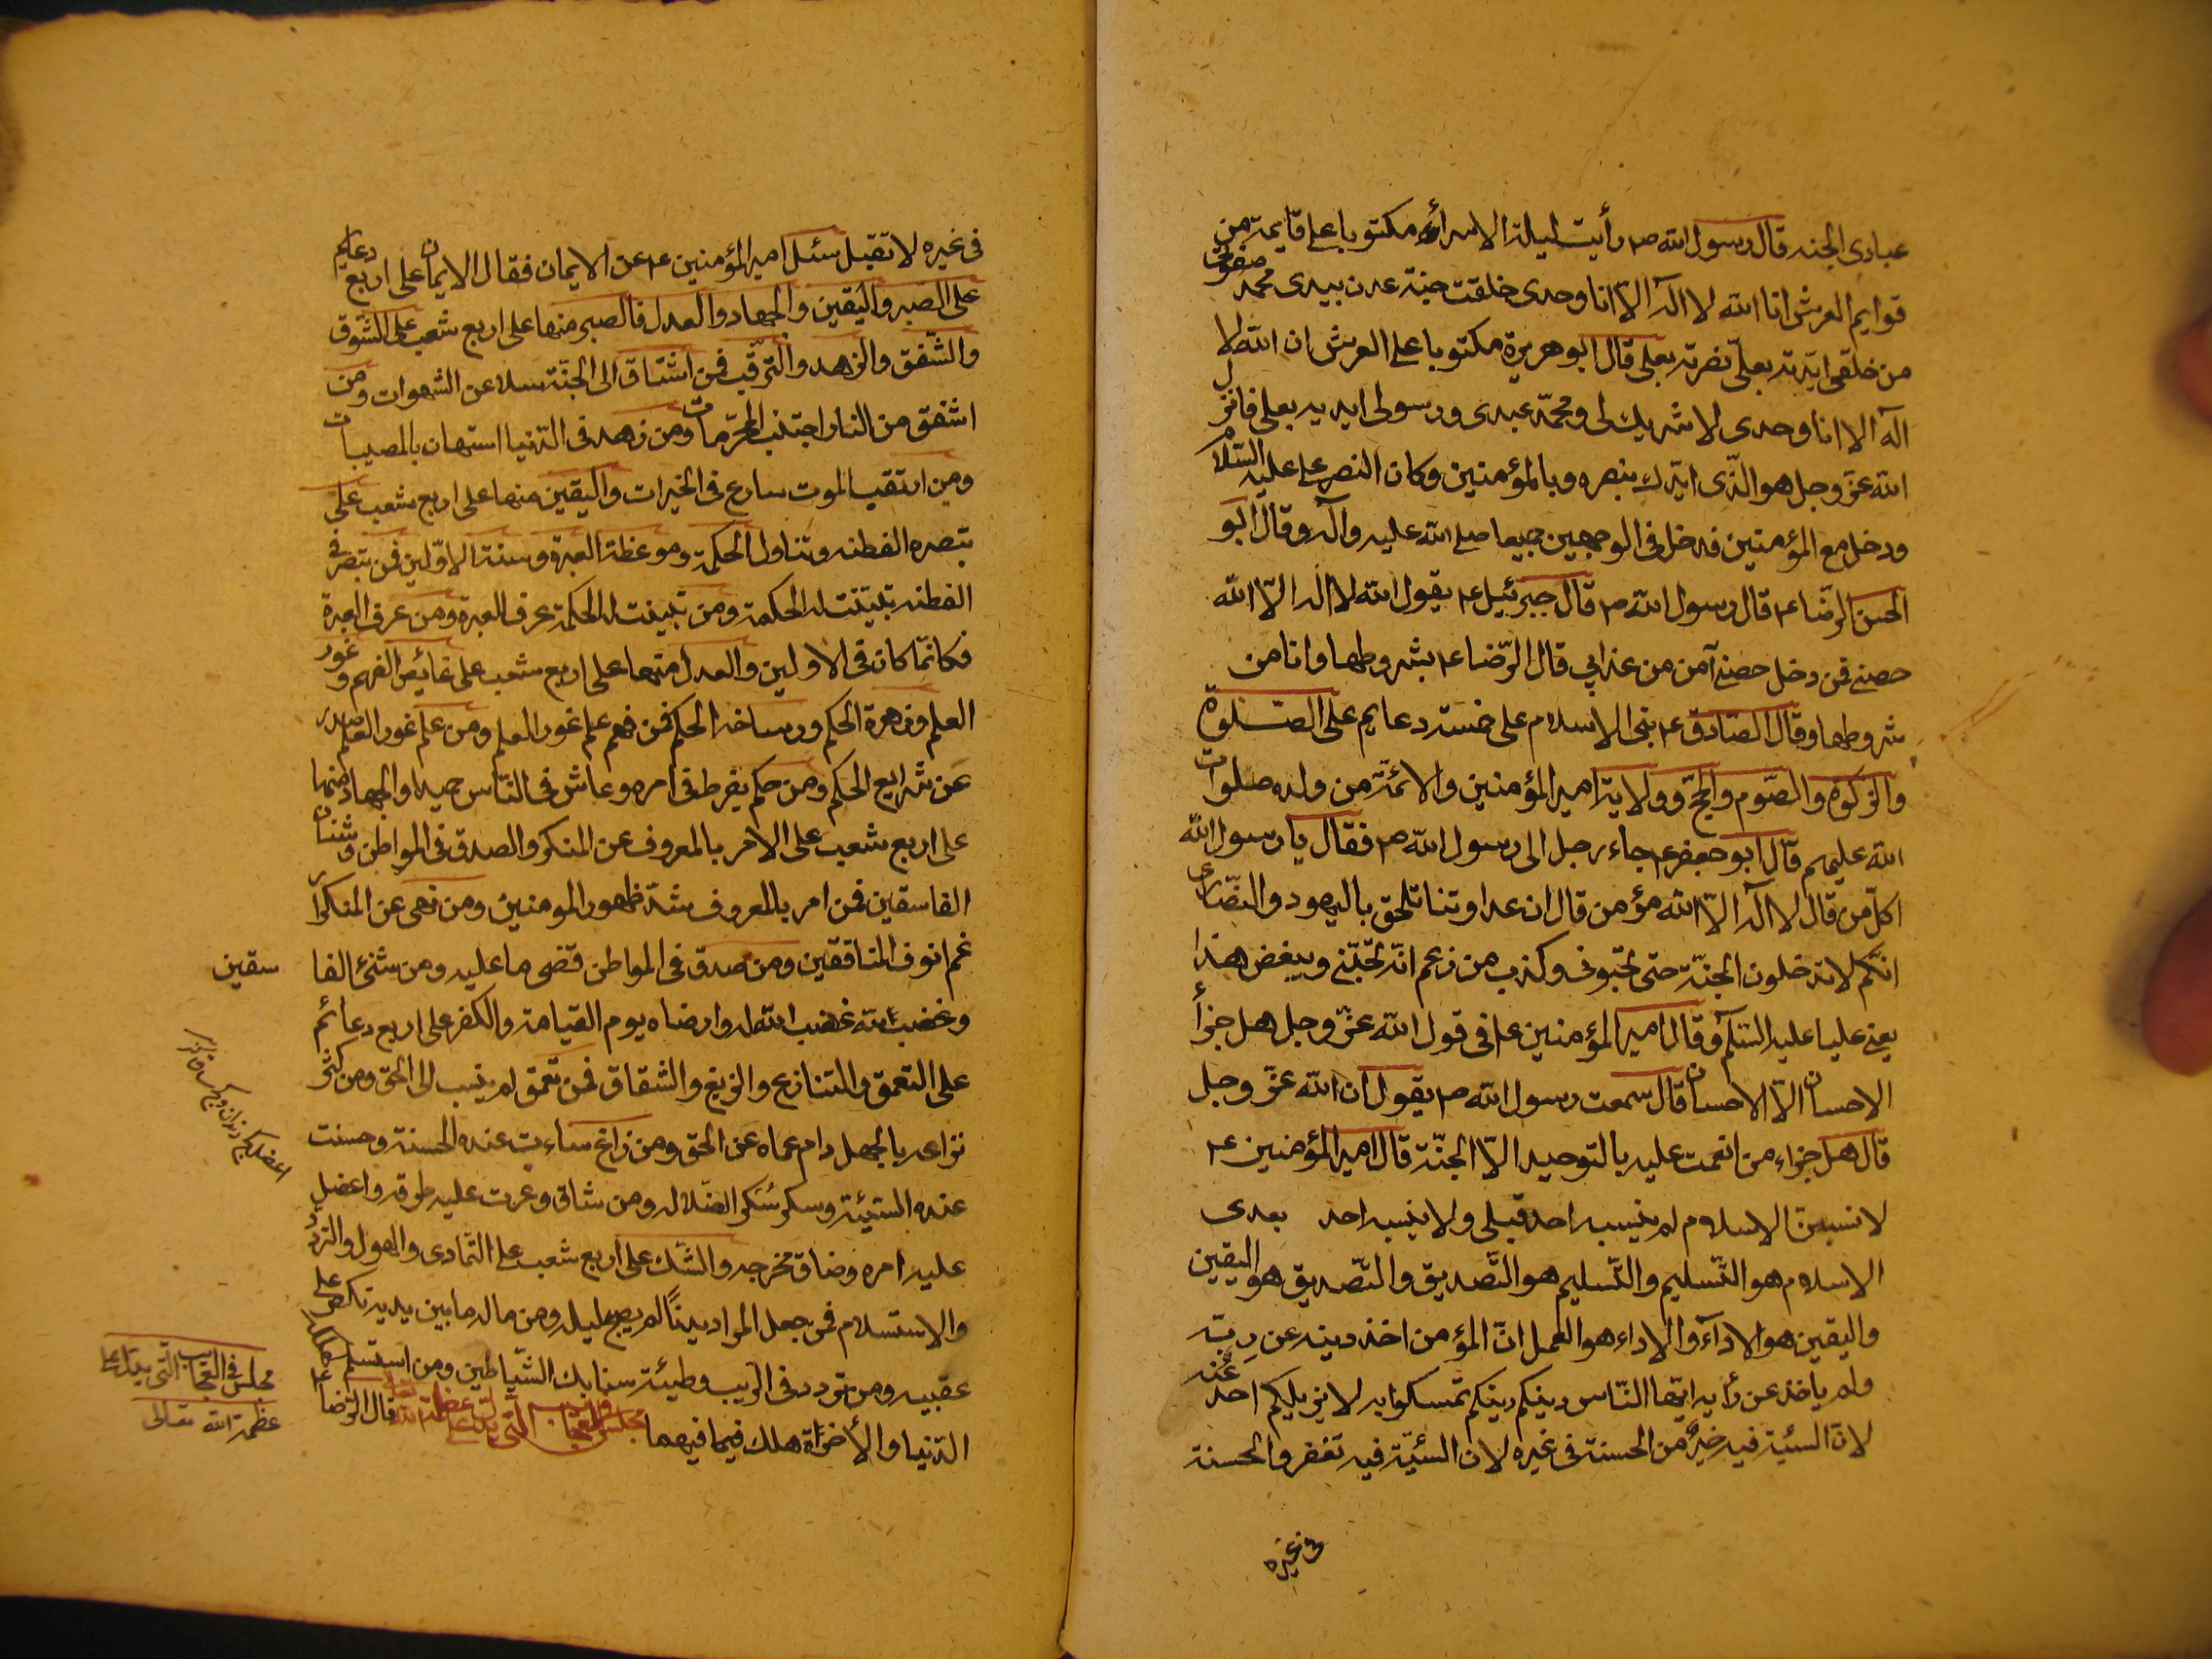 عبادى الجنه قال رسول الله ص رأيت ليلة الاسراء مكتوبا على قايمة من
قوايم العرش انا الله لا اله الا انا وحدى خلقت جنة عدن بيدى محمد صفوتى
من خلقى ايدته بعلى نصرته بعلى قال ابو هريرة مكتوبا على العرش ان الله لا
اله الا انا وحدى لا شريك لى ومحمد عبدى ورسولى ايدته بعلى فانزل
الله عز وجل هو الذى ايدك بنصره وبالمؤمنين وكان النصر على عليه السلام
ودخل مع المؤمنين فدخل فى الوجهين جميعا صلى الله عليه وآله وقال ابو
الحسن الرضا ع قال رسول الله ص قال جبرئيل ع يقول الله لا اله الا الله
حصنى فمن دخل حصنى آمن من عذابى قال الرضا ع بشروطها وانا من
شروطها وقال الصادق ع بنى الاسلام على خمسة دعايم على الصلوة
والزكوة والصوم والحج وولاية امير المؤمنين والائمة من ولده صلوات
الله عليهم قال ابو جعفر ع جاء رجل الى رسول الله ص فقال يا رسول الله
اكل من قال لا اله الا الله مؤمن قال ان عداوتنا تلحق باليهود والنصارى
انكم لا تدخلون الجنة حتى تحبونى وكذب من زعم انه يحبنى ويبغض هذا
يعنى عليا عليه السلم وقال امير المؤمنين ع فى قول الله عز وجل هل جزاء
الاحسان الا الاحسان قال سمعت رسول الله ص يقول ان الله عز وجل
قال هل جزاء من انعمت عليه بالتوحيد الا الجنة قال امير المؤمنين ع
لانسبن الاسلام لم ينسبه احد قبلى ولا ينسبه احد بعدى
الاسلام هو التسليم والتسليم هو التصديق والتصديق هو اليقين
واليقين هو الاداء والاداء هو العمل ان المؤمن اخذ دينه عن ربه
ولم ياخذ عن رأيه ايها الناس دينكم دينكم تمسكوا به لا يزيلكم احد عنه
لان السيئة فيه خير من الحسنة فى غيره لان السيئة فيه تغفر والحسنة
فى غيره
فى غيره لا تقبل سئل امير المؤمنين ع عن الايمان فقال الايمان على اربع دعايم
على الصبر واليقين والجهاد والعدل فالصبر منها على اربع شعب على الشوق
والشفق والزهد والترقب فمن اشتاق الى الجنة سلا عن الشهوات ومن
اشفق من النار اجتنب المحرمات ومن زهد فى الدنيا استهان بالمصيبات
ومن ارتقب الموت سارع فى الخيرات واليقين منها على اربع شعب على
تبصره الفطنه وتناول الحكمة وموعظة العبرة وسنة الاولين فمن تبصر فى
الفطنه تبينت له الحكمة ومن تبينت له الحكمة عرف العبرة ومن عرف العبرة
فكانما كان فى الاولين والعدل منها على اربع شعب على غائص الفهم وغور
العلم وزهرة الحكم ورساخه الحكم فمن فهم علم غور العلم ومن علم غور العلم صدر
عن شرايع الحكم ومن حكم يفرط فى امره وعاش فى الناس حميدا والجهاد منها
على اربع شعب على الامر بالمعروف عن المنكر والصدق فى المواطن وشنان
الفاسقين فمن امر بالمعروف شد ظهور المومنين ومن نهى عن المنكر
غم انوف المنافقين ومن صدق فى المواطن قضى ما عليه ومن شنئ الفا
سقين
وغضب لله غضب الله له وارضاه يوم القيامة والكفر على اربع دعائم
على التعمق والتنازع والزيغ والشقاق فمن تعمق لم ينب الى الحق ومن كثر
نزاعه بالجهل دام عماه عن الحق ومن زاغ ساءت عنده الحسنة وحسنت
عنده السيئة وسكر سكر الضلاله ومن شاق وعرت عليه طرقه واعضل
عليه امره وضاق مخرجه والشك على اربع شعب على التمادى والهول والتردد
والاستسلام فمن جعل المرا دينا لم يصبح ليله ومن ماله ما بين يديه نكص على
عقبيه ومن تردد فى الريب وطيئه سنابك الشياطين ومن استسلم لهلكة
الدنيا والاخرة هلك فيما فيهما مجلس فى العجايب التى تدل على عظمة الله قال الرضا ع
مجلس فى العجايب التى تدل على
عظمة الله تعالى